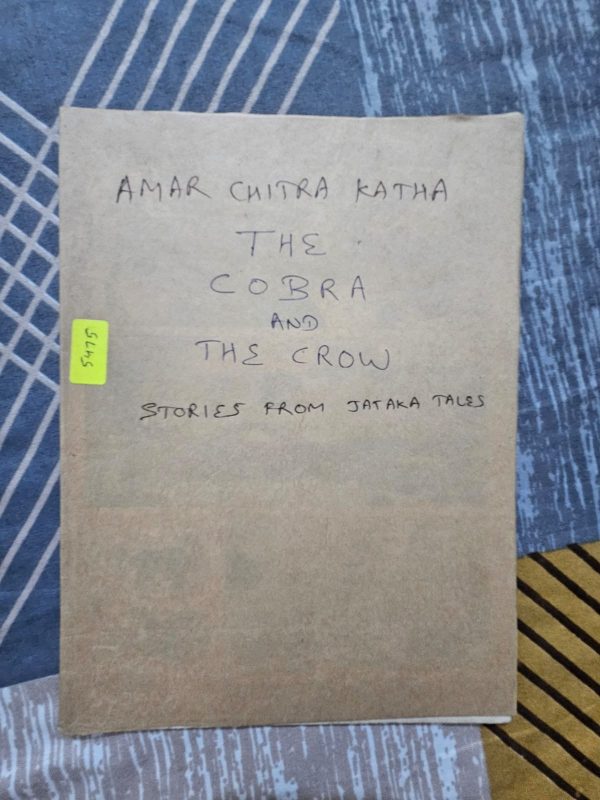 AMAR CHITRA KATHA
THE
COBRA
AND
THE CROW
STORIES FROM JATAKA TALES
5475